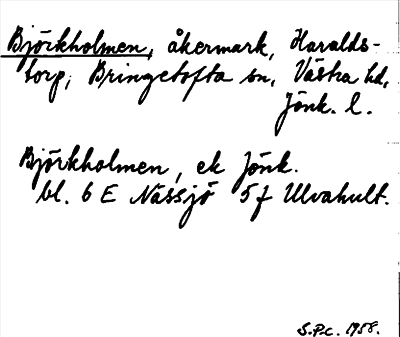 Björkholmen, åkermark, Haralds-
torp, Bringetofta sn, Västra hd,
Jönk. l.
Björkholmen, ek Jönk.
bl. 6 E Nässjö 5 f Ulvahult.
S.P.c. 1958.